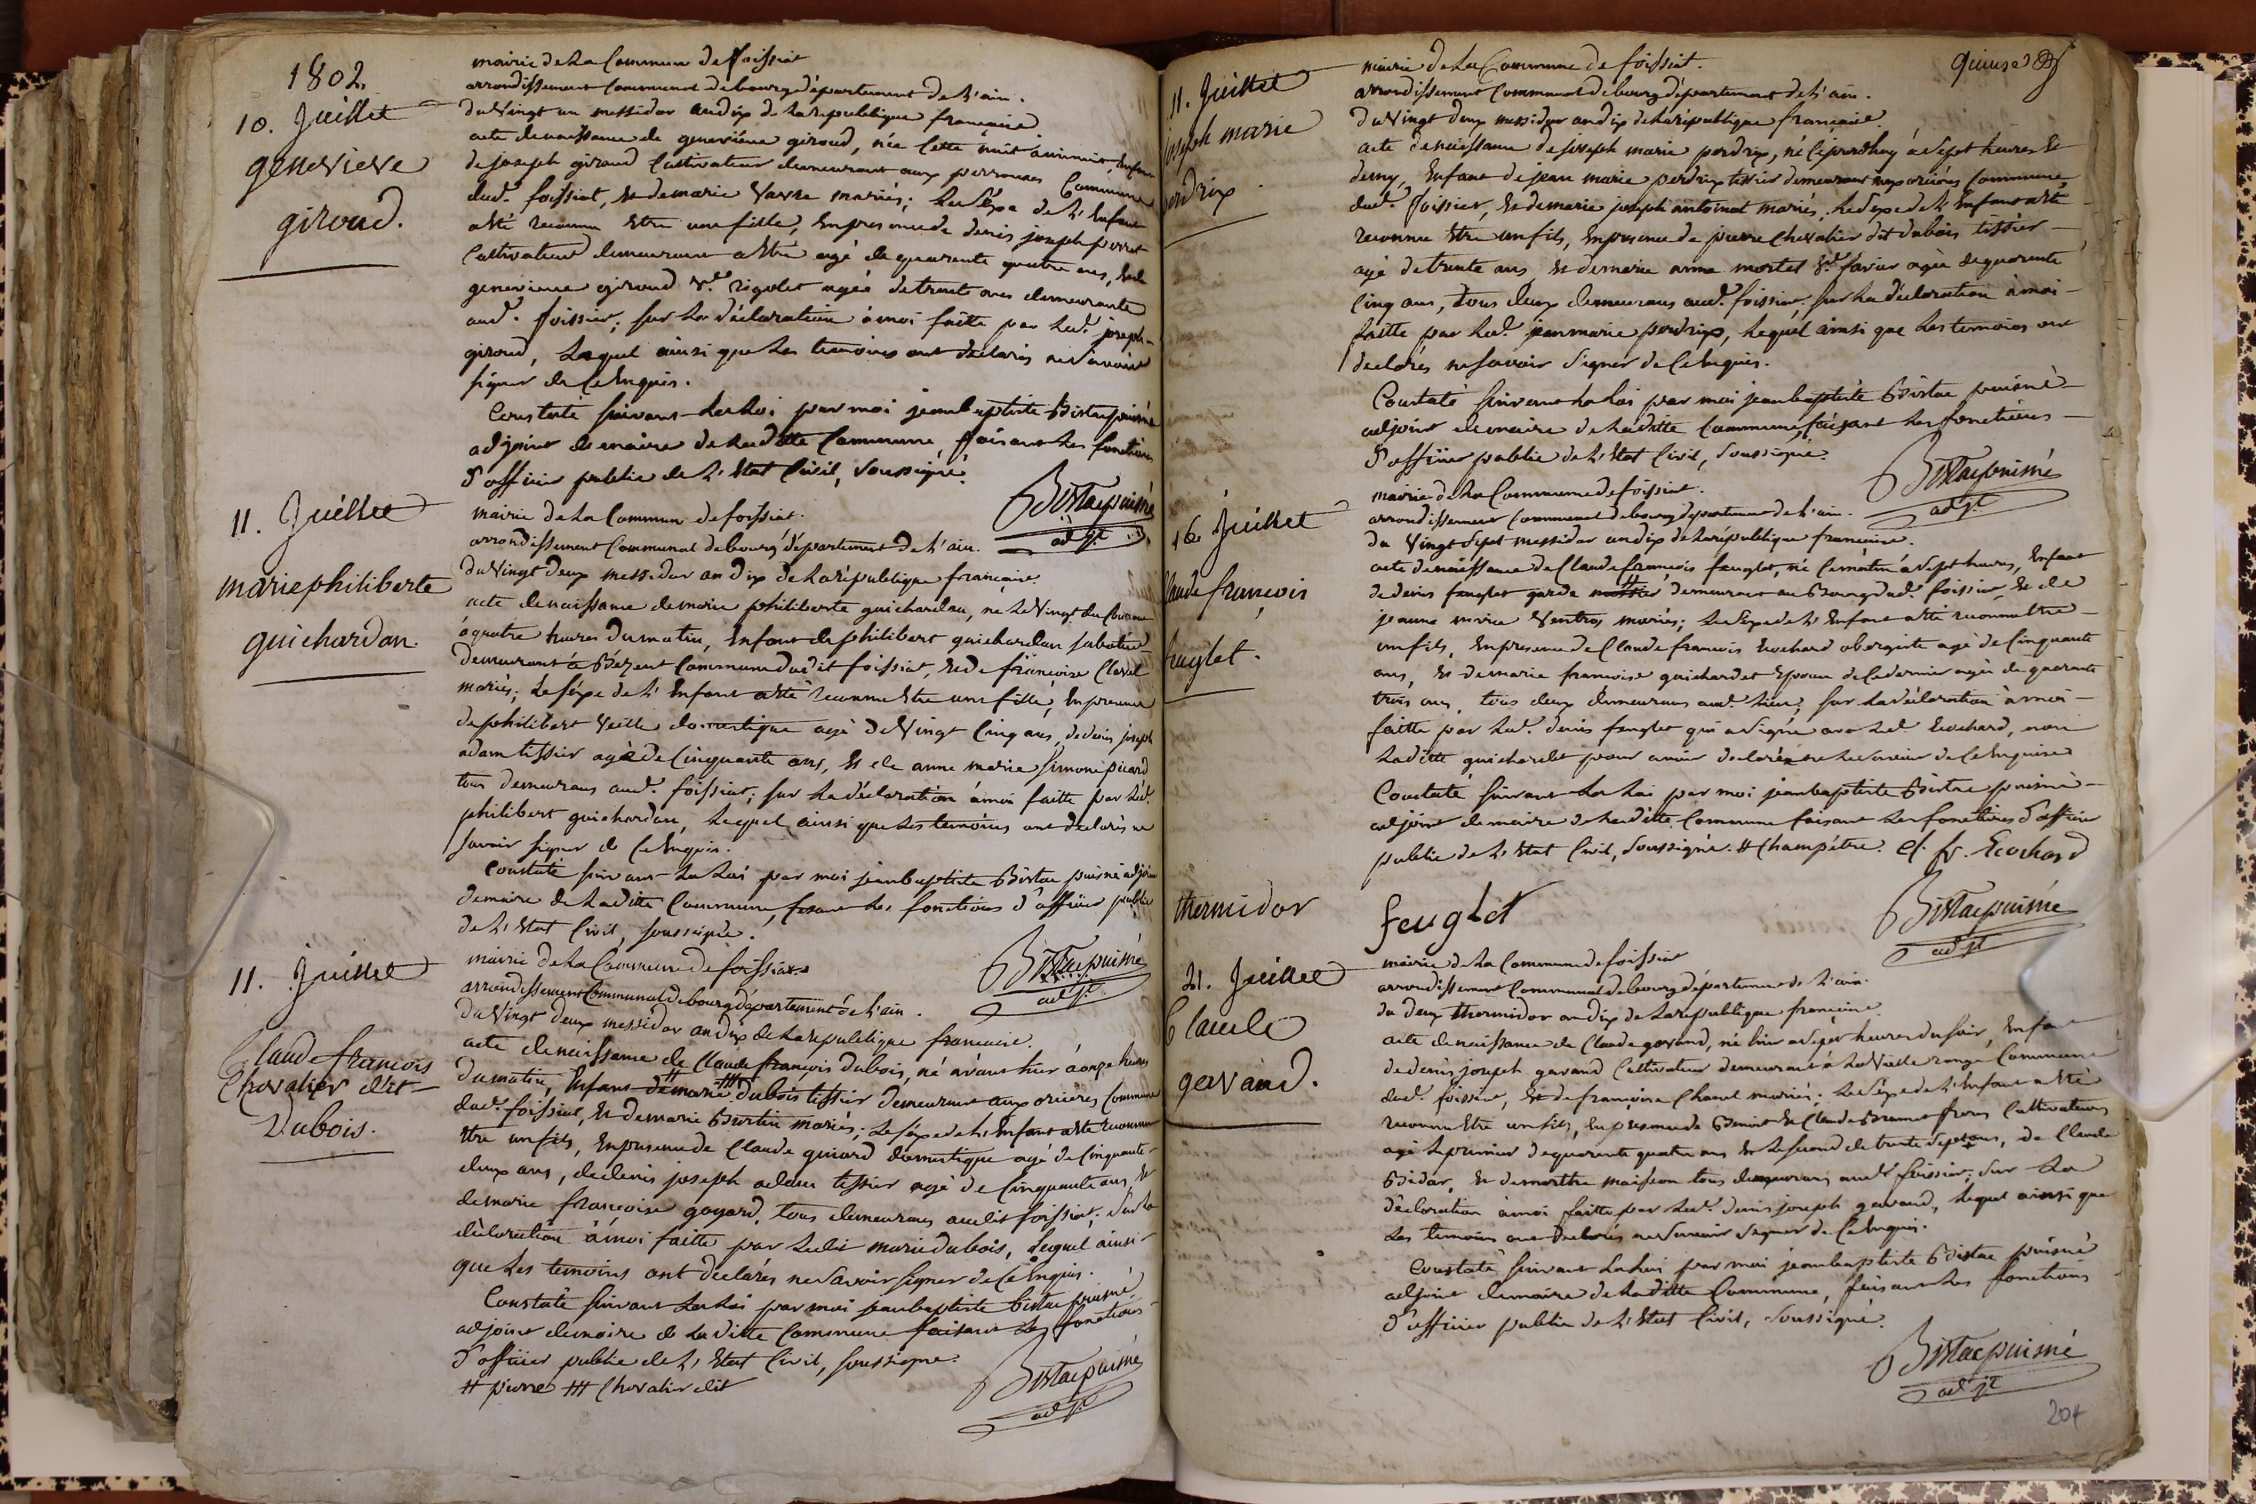 1802
10. Juillet
genevieve
giroud.
mairie de La Commune de foissiat
arrondissement Communal de bourg département de L'ain.
du Vingt un messidor an dix de La republique francaise.
acte de naissance de genevieve giroud, née Cette nuit a minuit, Enfant
de joseph giroud Cultivateur demeurant aux perrouses Commune
dud. foissiat, Et de marie Vavre mariés; Le Sexe de L'Enfant
a été reconnu Etre une fille, En presence de denis joseph perret
Cultivateur demeurant a agé de quarante quatre ans, Et de
genevieve giroud Ve. rigolet agée de trente ans demeurants
aud. foissiat; sur La déclaration à moi faitte par Led. joseph
giroud, Lequel ainsi que Les temoins ont declarés ne Savoir
signer de Ce Enquis.
Constaté suivant La Loi par moi jean baptiste Bistac puisné
adjoint de maire de Laditte Commune, faisant Les fonctions
d'officier public de L'Etat Civil, Soussigné.
Bistac puisné
adjt.
11. Juillet
marie philiberte
guichardan
mairie de La Commune de foissiat.
arrondissement Communal de bourg département de L'ain.
du Vingt deux messidor an dix de La république française.
acte de naissance de marie philiberte guichardan, né Le Vingt du Courant
à quatre heures du matin, Enfant de philibert guichardan sabotier
demeurant à Bézent Commune dudit foissiat, Et de françoise Clavel
mariés; Le séxe de L'Enfant a été reconnu Etre une fille, En presence
de philibert Veille domestique agé de Vingt Cinq ans, de denis joseph
adam tissier agé de Cinquante ans, Et de anne marie Simone picard
tous demeurans aud. foissiat; sur La déclaration à moi faitte par Led.
philibert guichardan, Lequel ainsi que Les temoins ont declarés ne
Savoir signer de Ce Enquis.
Constaté suivant La Loi par moi jean baptiste Bistac puisné adjoint
de maire de Laditte Commune, faisant Les fonctions d'officier public
de L'Etat Civil, soussigné.
Bistac puisné
adjt.
11. Juillet
Claude francois
Chevalier dit
Dubois.
mairie de La Commune de foissiat
arrondissement Communal de bourg département de L'ain.
du Vingt deux messidor an dix de La republique francaise.
acte de naissance de Claude françois dubois, né avant hier à onze heures
du matin, Enfant de marie dubois tissier demeurant aux orcières Commune
dud. foissiat, Et de marie Burtin mariés; Le séxe de L'Enfant a été reconnu
Etre un fils, En presence de Claude guiard domestique agé de Cinquante
deux ans, de denis joseph adam tissier agé de Cinquante ans, Et
de marie françoise gayard, tous demeurans audit foissiat; Sur La
déclaration à moi faitte par Ledit marie dubois, Lequel ainsi
que Les temoins ont declarés ne Savoir signer de Ce Enquis.
Constaté suivant La Loi par moi jean baptiste Bistac puisné
adjoint de maire de La ditte Commune faisant Les fonctions
d'officier public de L'Etat Civil, soussigné.
# pierre ## Chevalier dit
Bistac puisné
adjt.
11. Juillet
joseph marie
perdrix.
mairie de La Commune de foissiat.
arrondissement Communal de bourg département de L'ain.
du Vingt deux messidor an dix de La république française.
acte de naissance de joseph marie perdrix, né Ce jourdhuy à Sept heures Et
demy, Enfant de jean marie perdrix tissier demeurant aux orcières Commune
dud. foissiat, Et de marie joseph antoinat mariés, Le Sexe de L'Enfant a été
reconnu Etre un fils, En presence de pierre Chevalier dit dubois tissier
agé de trente ans, Et de marie anne mortel Ve. favier agée de quarante
Cinq ans, tous deux demeurans aud. foissiat; sur La déclaration à moi
faitte par Led. jean marie perdrix, Lequel ainsi que Les temoins ont
declarés ne Savoir Signer de Ce Enquis.
Constaté suivant La Loi par moi jean baptiste Bistac puisné
adjoint de maire de Laditte Commune, faisant Les fonctions
d'officier public de L'Etat Civil, Soussigné.
Bistac puisné
adjt.
16. Juillet
Claude françois
feuglet.
mairie de La Commune de foissiat.
arrondissement Communal de bourg département de L'ain.
du Vingt Sept messidor an dix de La république francaise.
acte de naissance de Claude françois feuglet, né Ce matin à Sept heures, Enfant
de denis feuglet garde # demeurant au Bourg dud. foissiat, Et de
jeanne Ventros mariés; Le Sexe de L'Enfant a été reconnu Etre
un fils, En presence de Claude francois Ecochard aubergiste agé de Cinquante
ans, Et de marie francoise guichardet Epouse de Ce dernier agée de quarante
trois ans, tous deux demeurans aud. Lieu, sur La déclaration à moi
faitte par Led. denis feuglet qui a Signé avec Led. Ecochard, non
Laditte guichardet pour avoir declaré ne Le Savoir de Ce Enquise
Constaté suivant La Loi par moi jean baptiste Bistac puisné
adjoint de maire de Laditte Commune faisant Les fonctions d'officier
public de L'Etat Civil, Soussigné. # Champêtre. Cl. fr. Ecochard
feuglet
Bistac puisné
adjt
thermidor
21. Juillet
Claude
gavand.
mairie de La Commune de foissiat
arrondissement Communal de bourg département de L'ain.
du deux thermidor an dix de La republique françoise.
acte de naissance de Claude gavand, né hier a Sept heures du Soir, Enfant
de denis joseph gavand Cultivateur demeurant à La Vieille rouge Commune
dud. foissiat, Et de françoise Chanel mariés; Le Séxe de L'Enfant a Eté
reconnu Etre un fils, En presence de Benoit Et Claude Brunet freres Cultivateurs
agé Le premier de quarante quatre ans Et Le Second de trente Sept ans, de Claude
Bidar, Et de marthe maisson tous demeurans aud. foissiat; Sur La
déclaration à moi faitte par Led. denis joseph gavand, Lequel ainsi que
Les temoins ont declarés ne Savoir Signer de Ce Enquis.
Constaté suivant La Loi par moi jean baptiste Bistac puisné
adjoint de maire de Laditte Commune, faisant Les fonctions
d'officier public de L'Etat Civil, Soussigné.
Bistac puisné
adjt
204